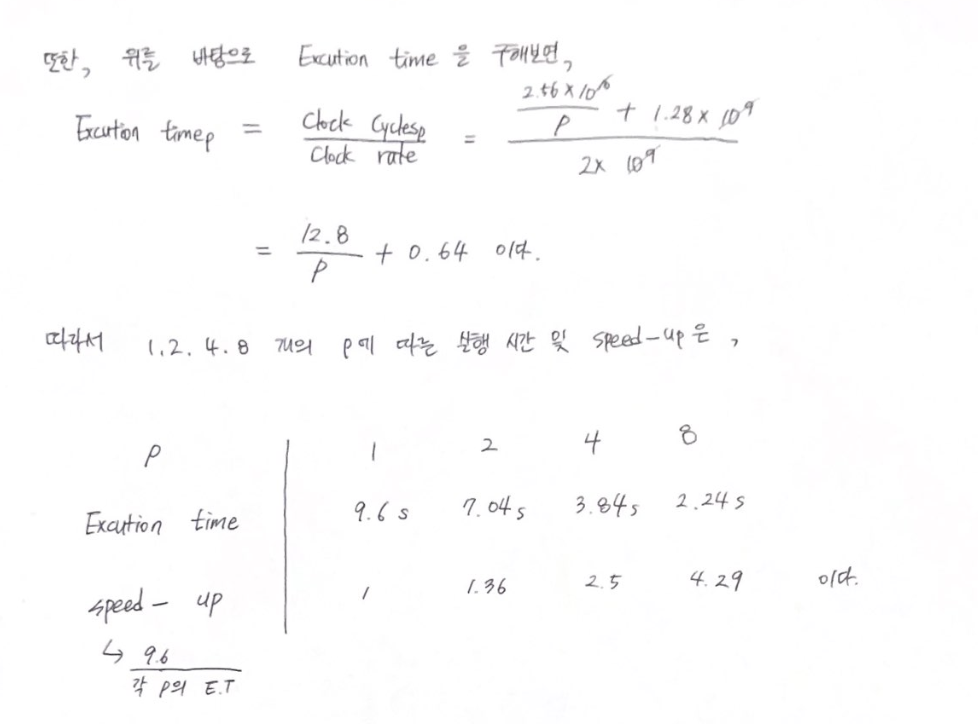 또한, 위를 바탕으로 Excution time 을 구해보면,
Excution timep = Clock Cyclesp / Clock rate = (2.56 x 10^10 / p + 1.28 x 10^9) / 2x 10^9
= 12.8 / p + 0.64 이다.
따라서 1. 2. 4. 8 개의 p에 따른 실행 시간 및 speed-up 은 ,
p 1 2 4 8
Excution time 9.6 s 7.04 s 3.84 s 2.24 s
speed - up 1 1.36 2.5 4.29 이다.
↳ 9.6 / 각 p의 E.T